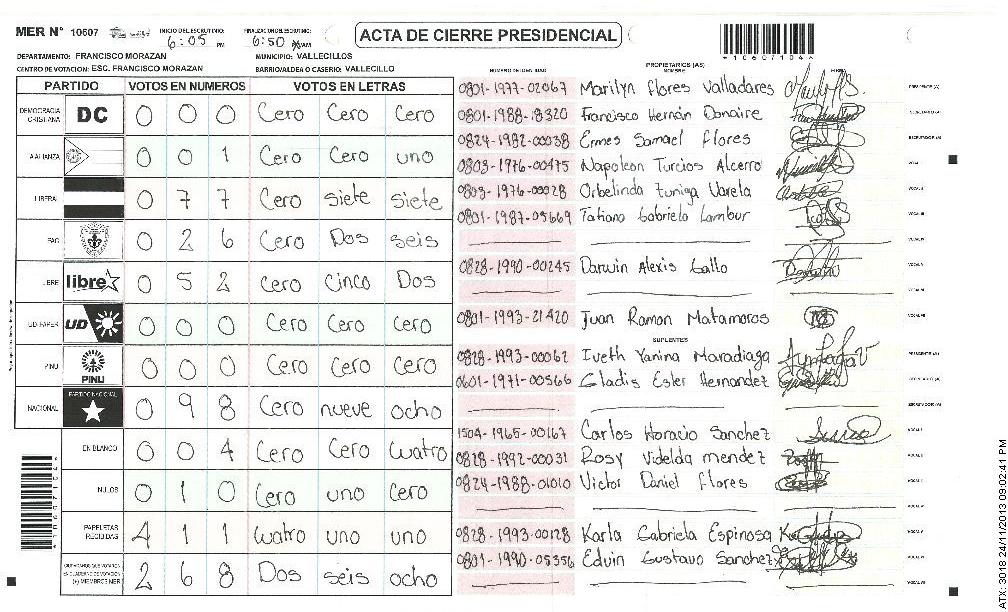 MER N° 10607 INICIO DEL ESCRUTINIO: 6:05 PM FINALIZACION DEL ESCRUTINIO: 6:50 AM
ACTA DE CIERRE PRESIDENCIAL
*10607104*
DEPARTAMENTO: FRANCISCO MORAZAN MUNICIPIO: VALLECILLOS
CENTRO DE VOTACION: ESC. FRANCISCO MORAZAN BARRIO/ALDEA O CASERIO: VALLECILLO
PARTIDO VOTOS EN NUMEROS VOTOS EN LETRAS
DEMOCRACIA CRISTIANA DC 0 0 0 Cero Cero Cero
ALIANZA 0 0 1 Cero Cero uno
LIBERAL 0 7 7 Cero siete siete
PAC 0 2 6 Cero Dos seis
LIBRE libre 0 5 2 Cero Cinco Dos
UD-FAPER UD 0 0 0 Cero Cero Cero
PINU PINU 0 0 0 Cero Cero Cero
NACIONAL PARTIDO NACIONAL 0 9 8 Cero nueve ocho
EN BLANCO 0 0 4 Cero Cero Cuatro
NULOS 0 1 0 Cero uno Cero
PAPELETAS RECIBIDAS 4 1 1 Cuatro uno uno
(+) MIEMBROS MER 2 6 8 Dos seis ocho
NUMERO DE IDENTIDAD PROPIETARIOS (AS) NOMBRE FIRMA
0801-1977-02067 Marilyn Flores Valladares PRESIDENTE (A)
0801-1988-18320 Francisco Hernán Donaire SECRETARIO (A)
0824-1982-00038 Ermes Samael Flores ESCRUTADOR (A)
0803-1976-00475 Napoleon Turcios Alcerro VOCAL I
0803-1976-00028 Orbelinda Zuniga Varela VOCAL II
0801-1987-05669 Tatiana Gabriela Lambur VOCAL III
VOCAL IV
0828-1990-00245 Darwin Alexis Gallo VOCAL V
0801-1993-21420 Juan Ramon Matamoros VOCAL VII
SUPLENTES
0828-1993-00062 Iveth Yanina Maradiaga PRESIDENTE (A)
0601-1971-00566 Gladis Ester Hernandez SECRETARIO (A)
ESCRUTADOR (A)
1504-1965-00167 Carlos Horacio Sanchez VOCAL I
0828-1992-00031 Rosy Videlda mendez VOCAL II
0824-1988-01010 Victor Daniel flores
0828-1993-00128 Karla Gabriela Espinosa
0801-1990-05356 Edvin Gustavo Sanchez
VOCAL VII
ATX: 3018 24/11/2013 09:02:41 PM